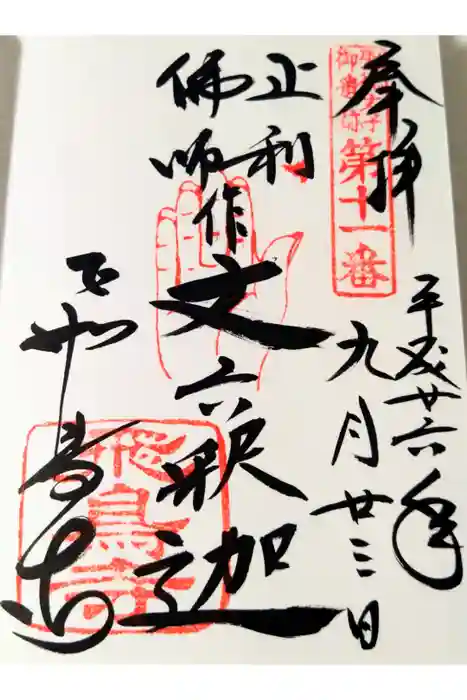 奉拝
聖徳太子
御遺跡
第十一番
平成廿六年
九月廿三日
止利
佛師作
丈六釈迦
飛鳥寺